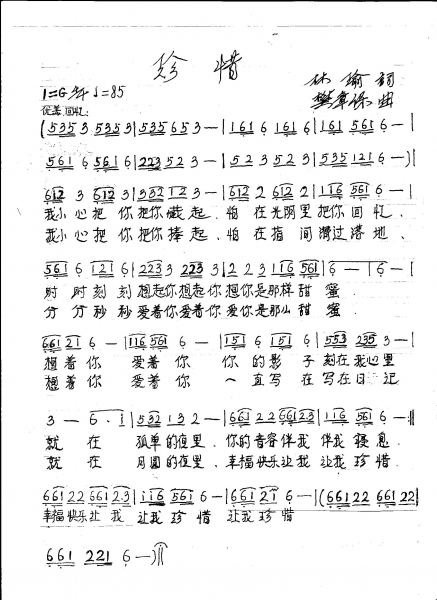 珍惜
林瑜 词
1=G 4/4 ♩=85
樊 曲
(535 3 535 3 | 535 653 — | 161 6 161 6 | 161 561 6 — |
561 6 561 6 | 223 523 — | 523 523 | 535 121 6 — )|
612 3 612 3 | 332 123 — | 612 2 612 2 | 116 561 6 — |
我小心把你把你藏起、怕在光阴里把你回收、
我小心把你把你捧起、怕在指间滑过落地、
561 6 121 6 | 223 3 223 3 | 223 116 561 | 6 — | 6 — |
时时刻刻想起你想起你想你是那样甜蜜.
分分秒秒爱着你爱着你爱你是那么甜蜜.
661 21 6 — | 116 561 6 — | 151 6 151 6 | 553 235 3 — |
想着你 爱着你 你的影子刻在我心里
想着你 爱着你 一直写在写在日记
3 — 6 · 1 | 532 132 — | 661 22 661 23 | 116 561 6 — :||
就在 孤单的夜里、你的音容伴我伴我寝息.
就在 月圆的夜里、幸福快乐让我让我珍惜.
661 22 661 23 | 116 561 6 — | 661 21 6 — | (661 22 661 22 |
幸福快乐让我 让我珍惜 让我珍惜
661 221 6 — )||